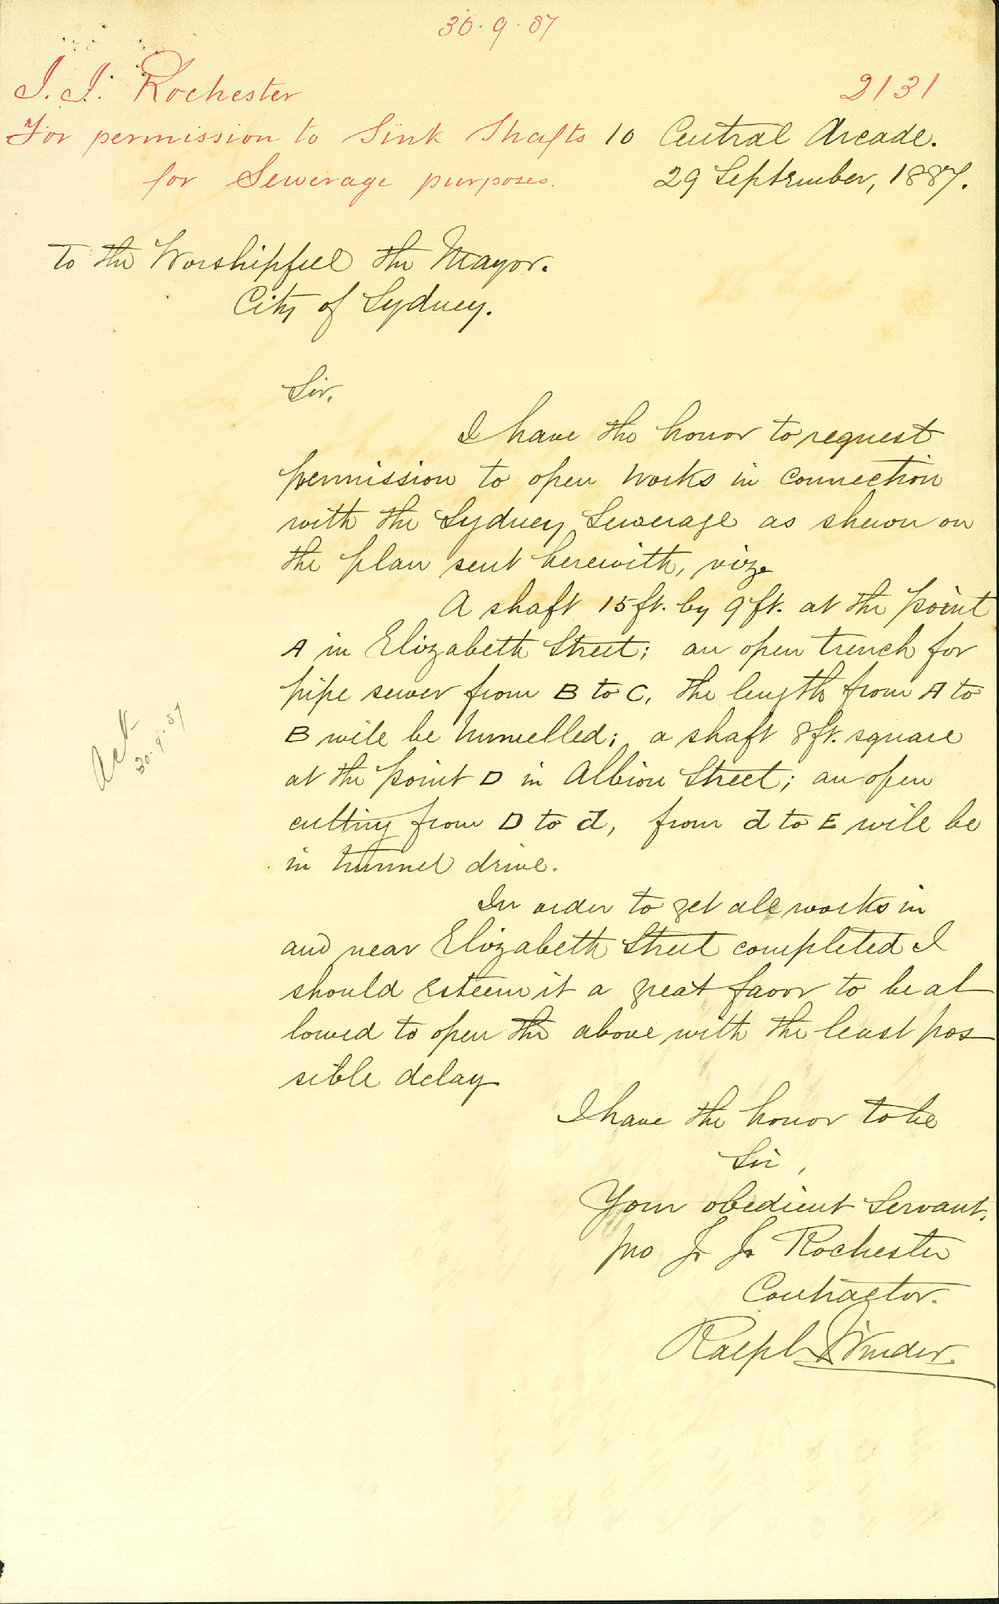 30.9.87
J. J. Rochester
2131
For permission to Sink Shafts
for Sewerage purposes.
10 Central Arcade.
29 September, 1887.
To the Worshipful the Mayor.
City of Sydney.
Sir,
I have the honor to request
permission to open works in connection
with the Sydney Sewerage as shewn on
the plan sent herewith, viz
A shaft 15 ft. by 9 ft. at the point
A in Elizabeth Street; an open trench for
pipe sewer from B to C, the length from A to
B will be tunnelled; a shaft 8 ft. square
at the point D in Albion Street; an open
cutting from D to d, from d to E will be
in tunnel drive.
In order to get all works in
and near Elizabeth Street completed I
should esteem it a great favor to be al
lowed to open the above with the least pos
sible delay
I have the honor to be
Sir,
Your obedient Servant,
pro J. J. Rochester
Contractor.
Ralph
Ack
30.9.87